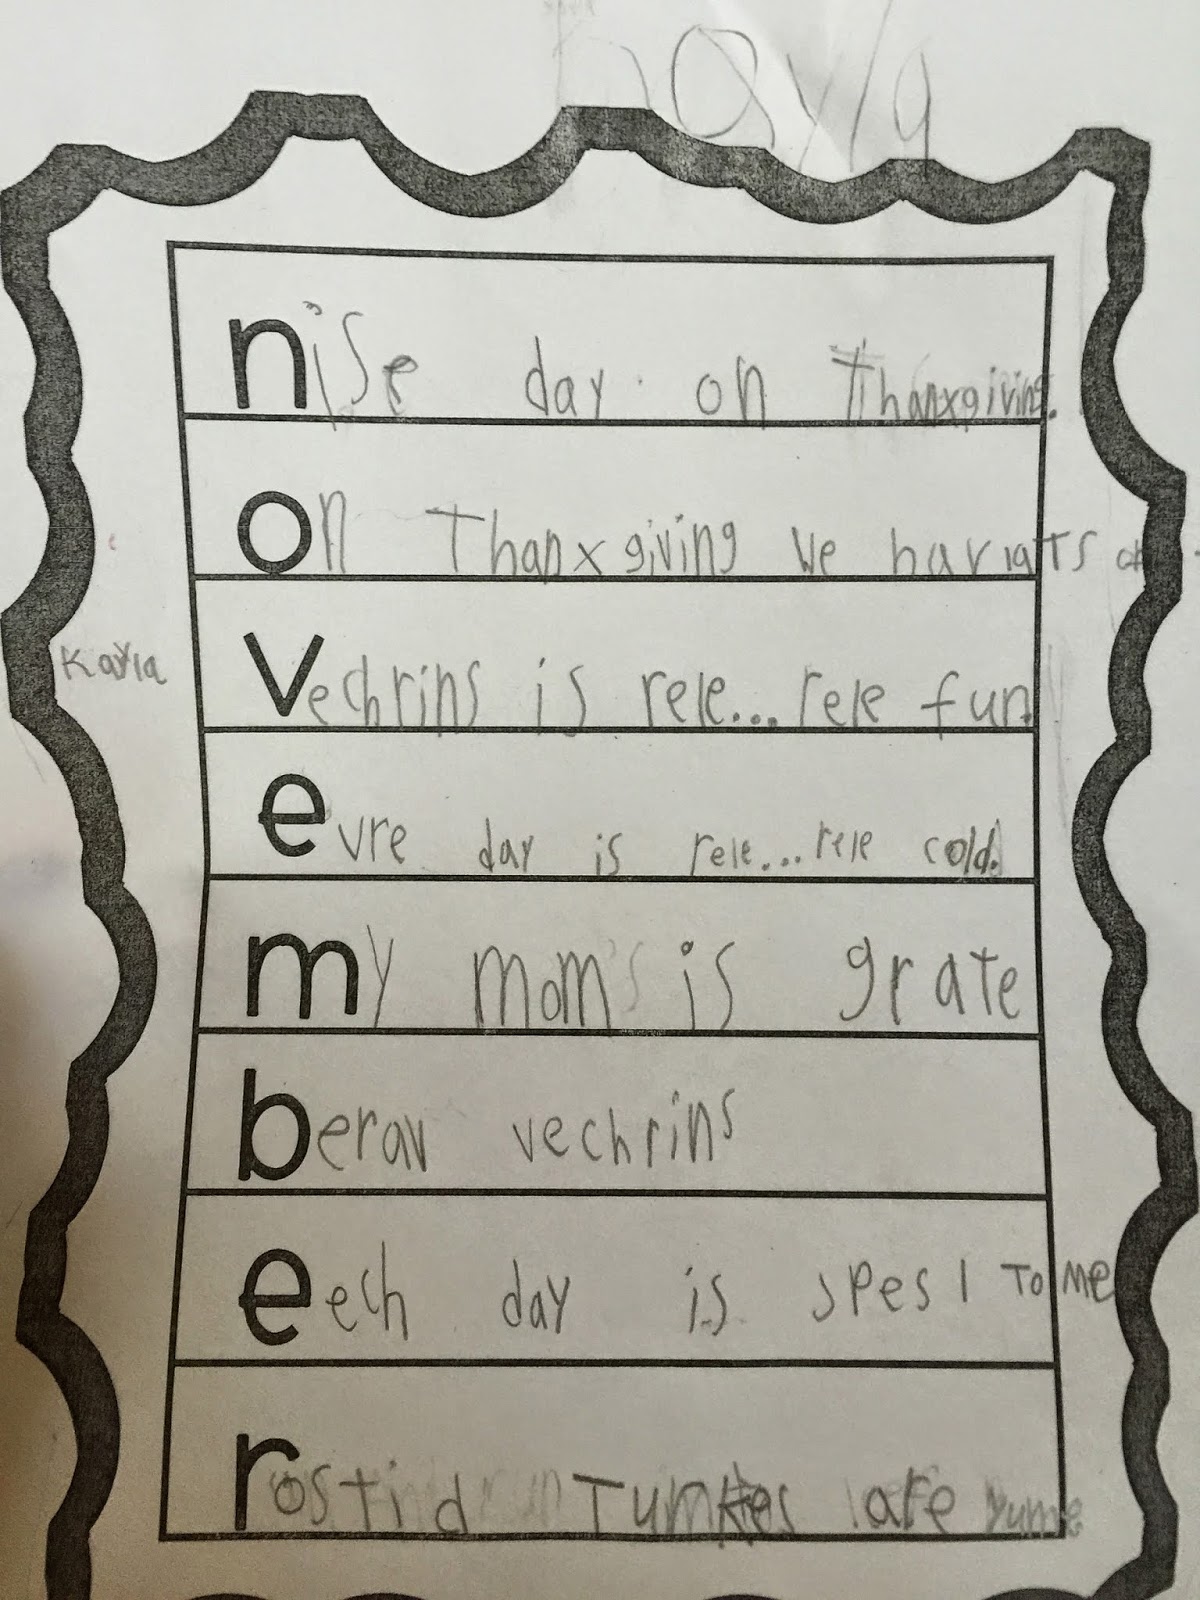 Kayla
nise day on Thanxgiving.
on Thanxgiving we
Kayla
vechrins is rele... rele fun
evre day is rele... rele cold.
my mom's is grate
berav vechrins
eech day is spesl To me
rostid are yume